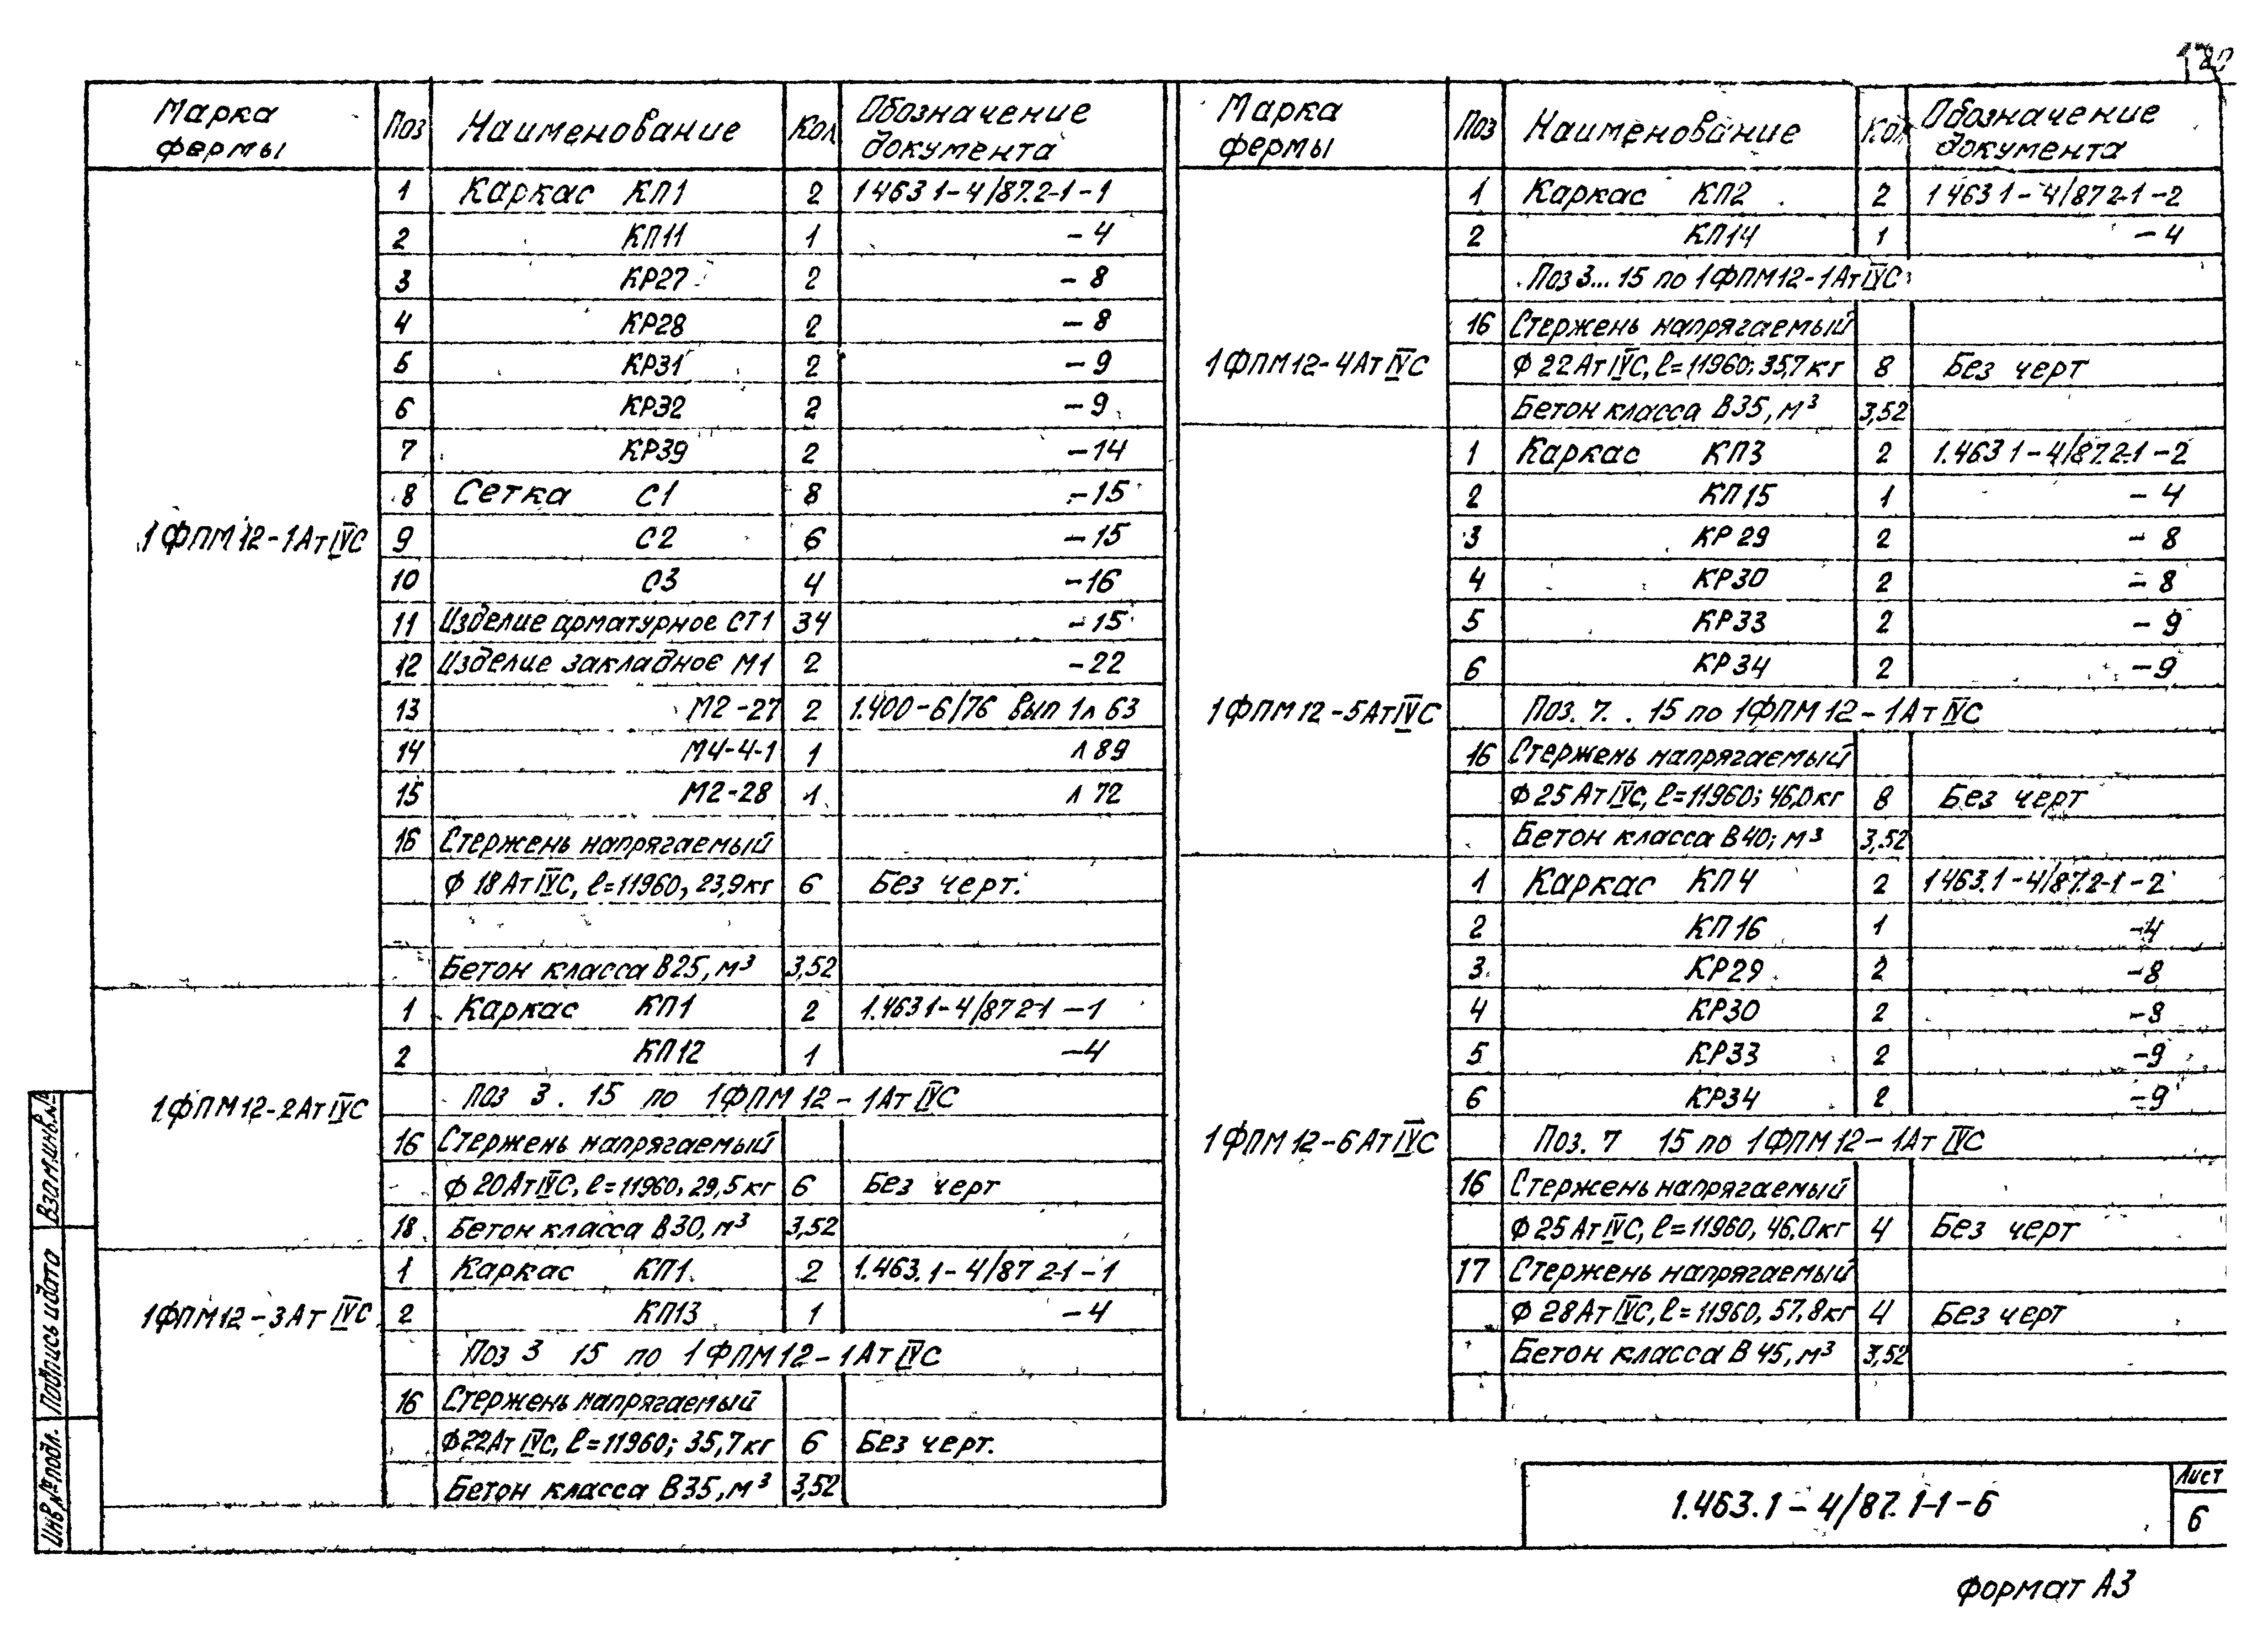 Марка фермы Поз Наименование Кол Обозначение документа
1ФПМ12-1АтIVС
1 Каркас КП1 2 1 463 1-4/87.2-1-1
2 КП11 1 -4
3 КР27 2 -8
4 КР28 2 -8
5 КР31 2 -9
6 КР32 2 -9
7 КР39 2 -14
8 Сетка С1 8 -15
9 С2 6 -15
10 С3 4 -16
11 Изделие арматурное СТ1 34 -15
12 Изделие закладное М1 2 -22
13 М2-27 2 1.400-6/76 Вып 1 л 63
14 М4-4-1 1 л 89
15 М2-28 1 л 72
16 Стержень напрягаемый
Ф 18 АтIVС, ℓ=11960, 23,9кг 6 Без черт.
Бетон класса В25, м³ 3,52
1ФПМ12-2АтIVС
1 Каркас КП1 2 1.463 1-4/87 2-1 -1
2 КП12 1 -4
Поз 3 . 15 по 1ФПМ 12-1АтIVС
16 Стержень напрягаемый
Ф 20АтIVС, ℓ=11960, 29,5кг 6 Без черт
18 Бетон класса В30, м³ 3,52
1ФПМ12-3АтIVС
1 Каркас КП1 2 1.463.1-4/87 2-1-1
2 КП13 1 -4
Поз 3 15 по 1ФПМ12-1АтIVС
16 Стержень напрягаемый
Ф22АтIVС, ℓ=11960; 35,7кг 6 Без черт.
Бетон класса В35, м³ 3,52
Марка фермы Поз Наименование Кол Обозначение документа
1ФПМ12-4АтIVС
1 Каркас КП2 2 1 463 1-4/87 2-1-2
2 КП14 1 -4
Поз 3...15 по 1ФПМ12-1АтIVС
16 Стержень напрягаемый
Ф 22АтIVС, ℓ=11960; 35,7кг 8 Без черт
Бетон класса В35, м³ 3,52
1ФПМ12-5АтIVС
1 Каркас КП3 2 1.463 1-4/87.2-1-2
2 КП15 1 -4
3 КР29 2 -8
4 КР30 2 -8
5 КР33 2 -9
6 КР34 2 -9
Поз. 7 . . 15 по 1ФПМ12-1АтIVС
16 Стержень напрягаемый
Ф25АтIVС, ℓ=11960; 46,0кг 8 Без черт
Бетон класса В40; м³ 3,52
1ФПМ12-6АтIVС
1 Каркас КП4 2 1 463.1-4/87.2-1-2
2 КП16 1 -4
3 КР29 2 -8
4 КР30 2 -8
5 КР33 2 -9
6 КР34 2 -9
Поз. 7 15 по 1ФПМ12-1АтIVС
16 Стержень напрягаемый
Ф25АтIVС, ℓ=11960, 46,0кг 4 Без черт
17 Стержень напрягаемый
Ф 28АтIVС, ℓ=11960, 57,8кг 4 Без черт
Бетон класса В45, м³ 3,52
Инв.№подл. Подпись и дата Взам.инв.№
1.463.1-4/87.1-1-6
Лист
6
Формат А3